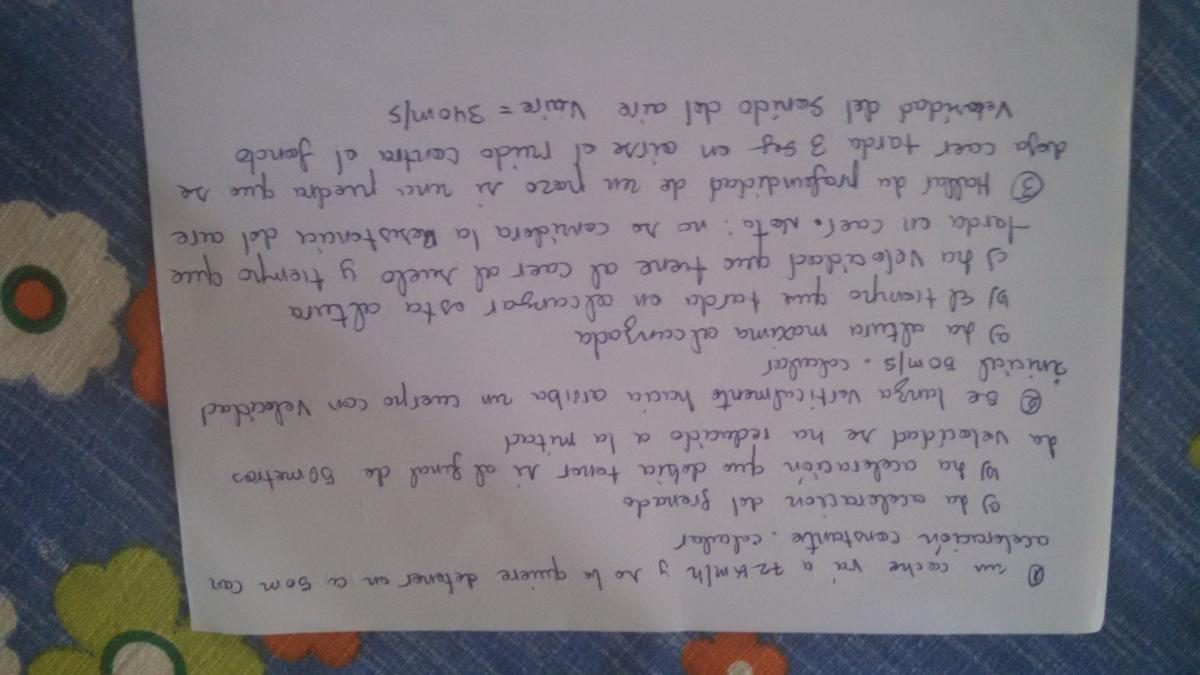 ① un coche va a 72 km/h y se le quiere detener en a 50m con
aceleración constante. calcular
a) La aceleracion del frenado
b) La aceleración que debia tener si al final de 50 metros
La velocidad se ha reducido a la mitad
② Se lanza verticalmente hacia arriba un cuerpo con velocidad
inicial 50 m/s. calcular
a) La altura maxima alcanzada
b) El tiempo que tarda en alcanzar esta altura
c) La velocidad que tiene al caer al suelo y tiempo que
tarda en caer. Nota: no se considera la Resistencia del aire
③ Hallar La profundidad de un pozo si una piedra que se
deja caer tarda 3 seg en oirse el ruido contra el fondo
Velocidad del Sonido del aire Vaire = 340m/s